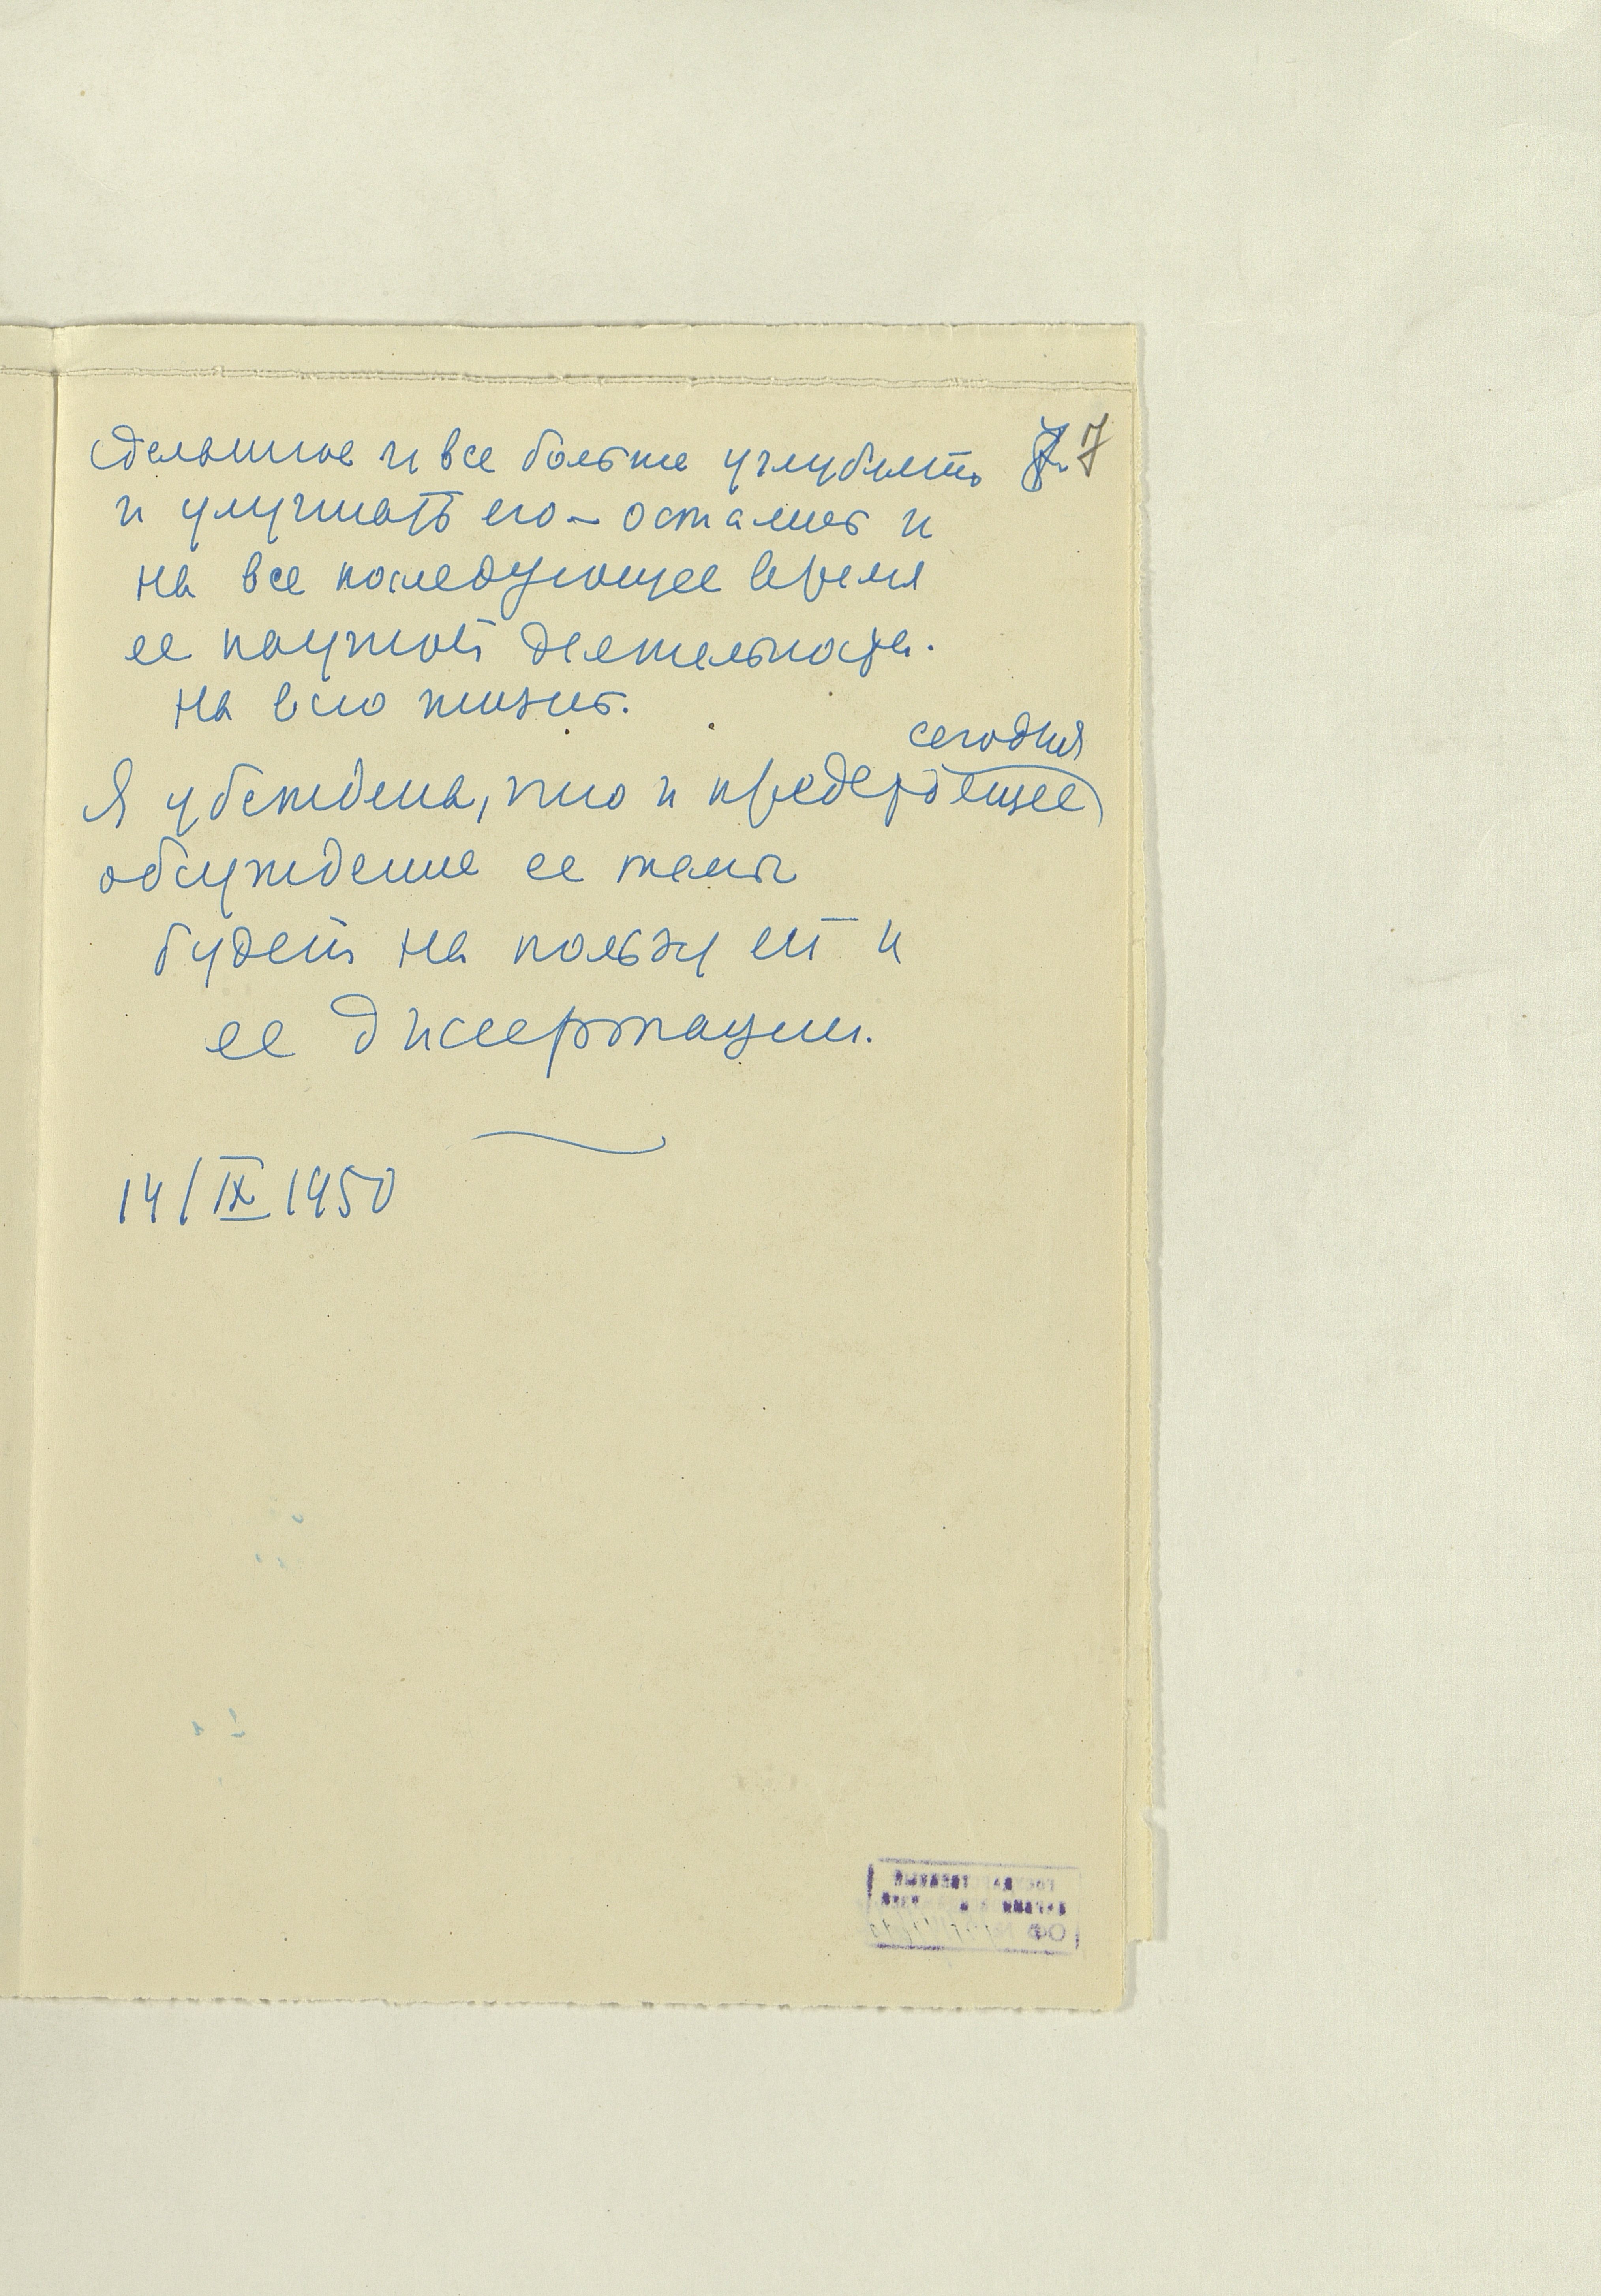 сделанное и все больше углублять 7. 7
и улучшать его — осталось и
на все последующее время
ее научной деятельности.
на всю жизнь.
сегодня
Я убеждена, что и предстоящее
обсуждение ее темы
будет на пользу ей и
ее диссертации.
14/IX 1950
ОФ №